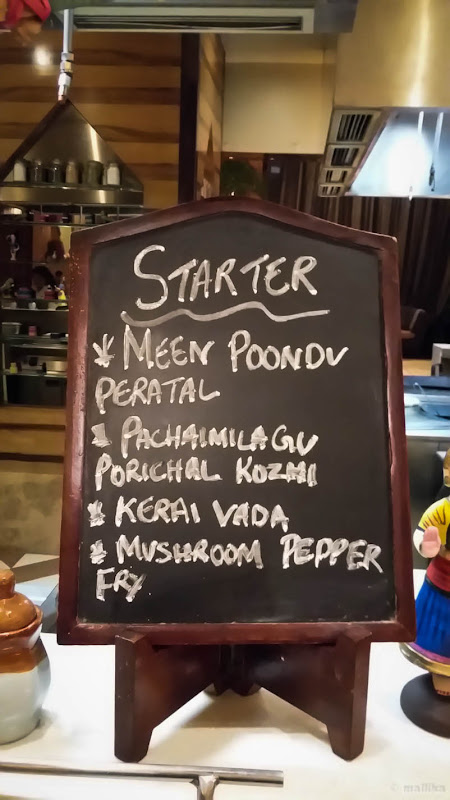 STARTER
* MEEN POONDU
PERATAL
* PACHAIMILAGU
PORICHAL KOZHI
* KERAI VADA
* MUSHROOM PEPPER
FRY
© mallika